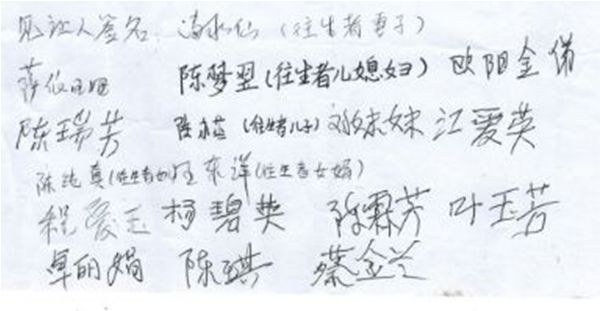 见证人签名：潘水仙（往生者妻子）
陈梦翌（往生者儿媳妇）欧阳金俤
陈瑞芳（往生者儿子）刘妹妹 江爱英
陈纯真（往生者女）汪东洋（往生者女婿）
程爱玉 杨碧英 陈霖芳 叶玉芳
卓丽娟 陈琪 蔡金兰